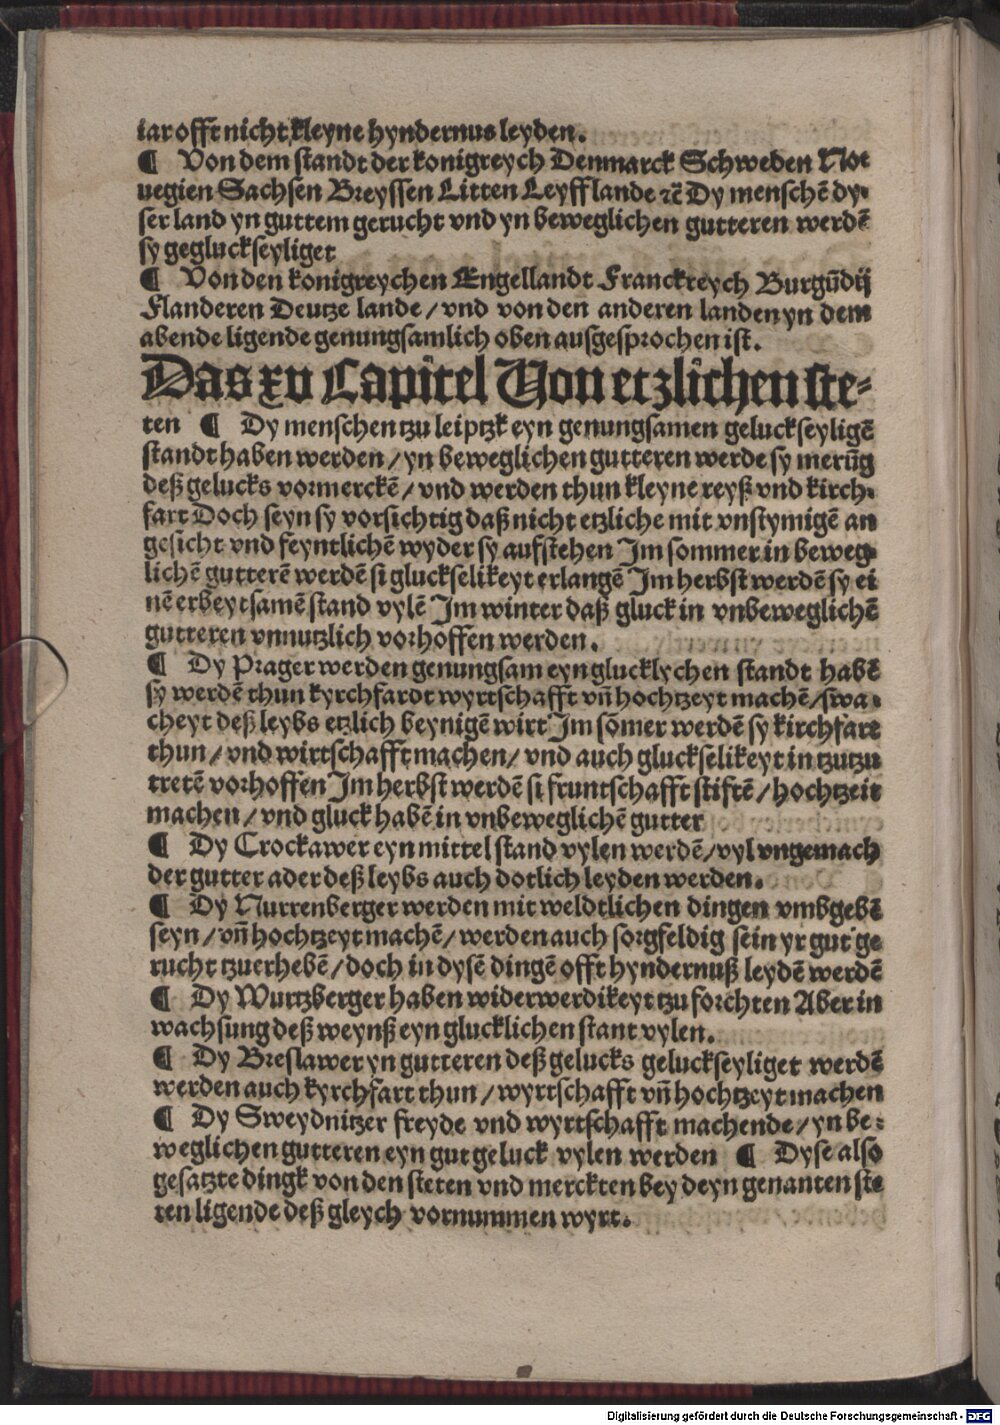 iar offt nicht kleyne hyndernus leyden.
¶ Von dem standt der konigreych Denmarck Schweden Not
uegien Sachsen Breyssen Litten Leyfflande ⁊cē Dy menschē dy⸗
ser land yn guttem gerucht vnd yn beweglichen gutteren werdē
sy gegluckseyliget
¶ Von den konigreychen Engellandt Franckreych Burgūdij
Flanderen Deutze lande / vnd von den anderen landen yn dem
abende ligende genungsamlich oben ausgesprochen ist.
Das xv Capitel Von etzlichen ste⸗
ten ¶ Dy menschen tzu leiptzk eyn genungsamen geluckseyligē
standt haben werden / yn beweglichen gutteren werde sy merūg
deß gelucks vormerckē / vnd werden thun kleyne reyß vnd kirch⸗
fart Doch seyn sy vorsichtig daß nicht etzliche mit vnstymigē an
gesicht vnd feyntlichē wyder sy aufstehen Im sommer in beweg⸗
lichē gutterē werdē si gluckselikeyt erlangē Im herbst werdē sy ei
nē erbeytsamē stand vylē Im winter daß gluck in vnbeweglichē
gutteren vnnutzlich vorhoffen werden.
¶ Dy Prager werden genungsam eyn glucklychen standt habē
sy werdē thun kyrchfardt wyrtschafft vn̄ hochtzeyt machē / swa⸗
cheyt deß leybs etzlich beynigē wirt Im sōmer werdē sy kirchfart
thun / vnd wirtschafft machen / vnd auch gluckselikeyt in tzutzu
tretē vorhoffen Im herbst werdē si fruntschafft stiftē / hochtzeit
machen / vnd gluck habē in vnbeweglichē gutter
¶ Dy Crockawer eyn mittel stand vylen werdē / vyl vngemach
der gutter ader deß leybs auch dotlich leyden werden.
¶ Dy Nurrenberger werden mit weldtlichen dingen vmbgebē
seyn / vn̄ hochtzeyt machē / werden auch sorgfeldig sein yr gut ge
rucht tzuerhebē / doch in dysē dingē offt hyndernuß leydē werdē
¶ Dy Wurtzberger haben widerwerdikeyt tzu forchten Aber in
wachsung deß weynß eyn glucklichen stant vylen.
¶ Dy Breslawer yn gutteren deß gelucks geluckseyliget werdē
werden auch kyrchfart thun / wyrtschafft vn̄ hochtzeyt machen
¶ Dy Sweydnitzer freyde vnd wyrtschafft machende / yn be⸗
weglichen gutteren eyn gut geluck vylen werden ¶ Dyse also
gesatzte dingk von den steten vnd merckten bey deyn genanten ste
ten ligende deß gleych vornummen wyrt.
Digitalisierung gefördert durch die Deutsche Forschungsgemeinschaft - DFG